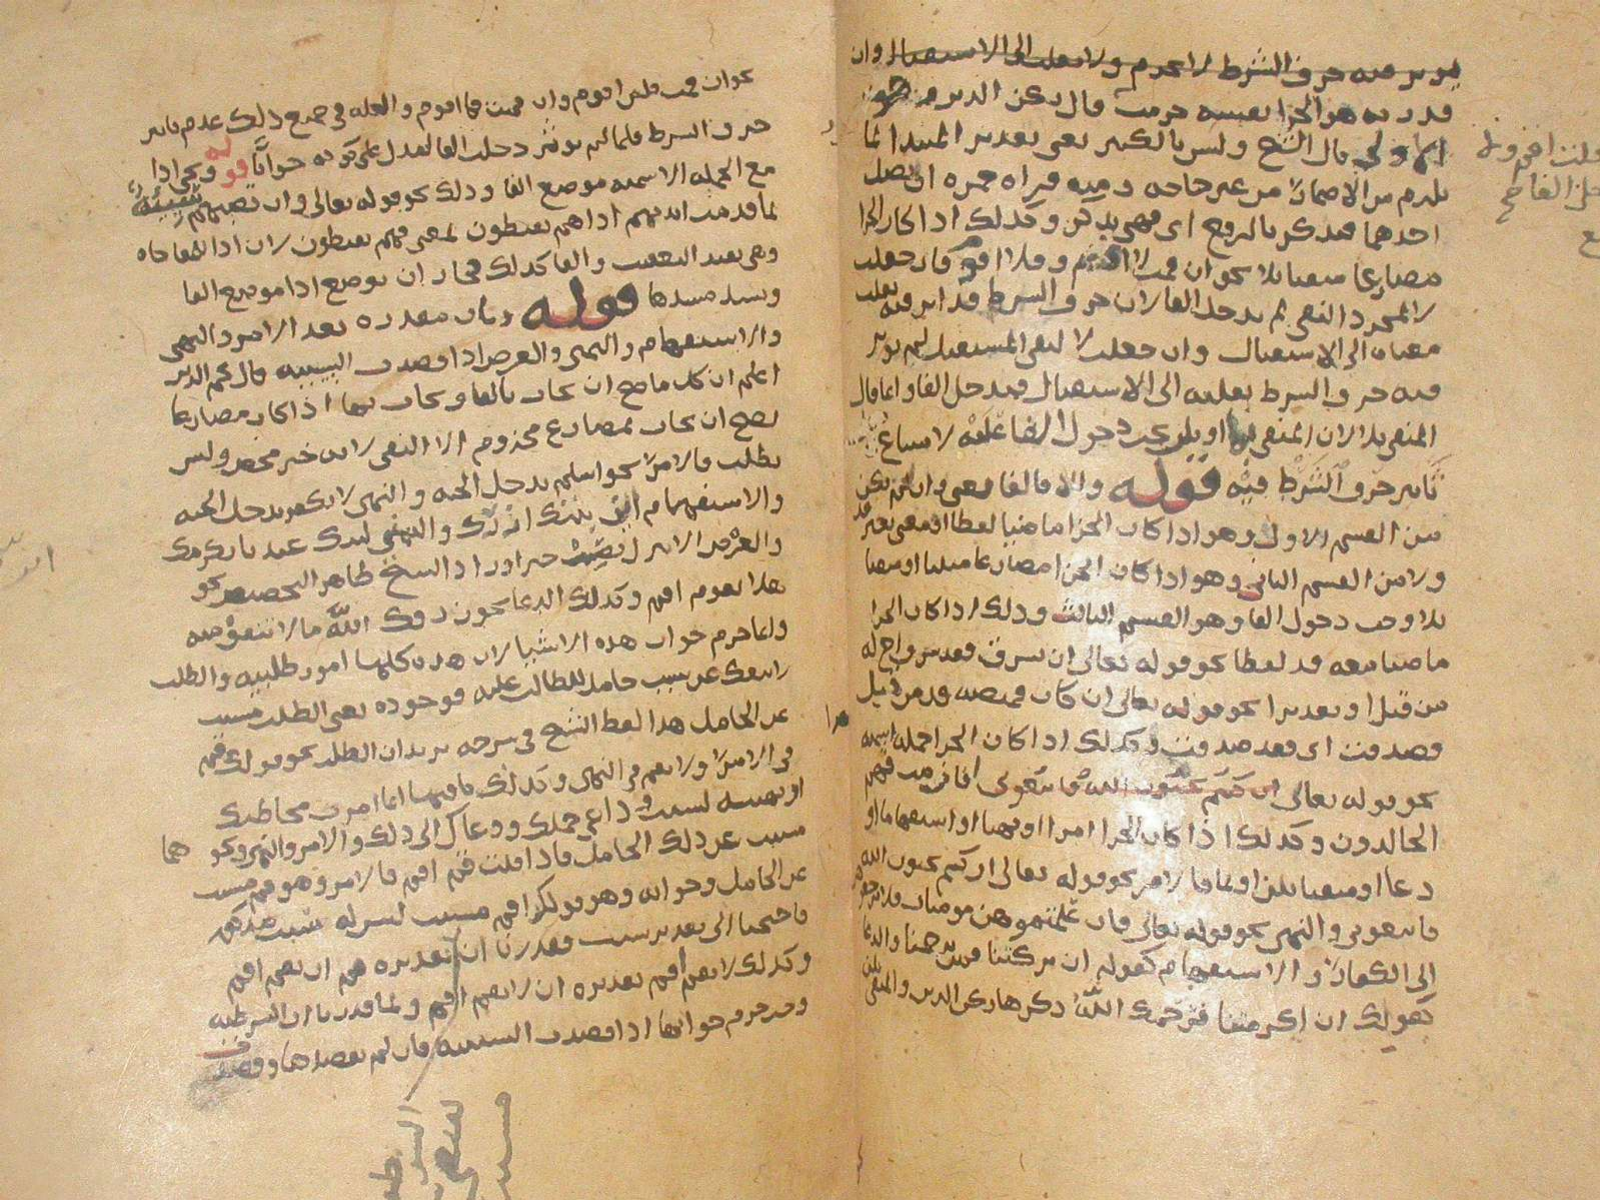 يوثر فيه حرف الشرط لا يجزم ولا يقلب الى الاستقبال وان
قدر به هو الجزا بنفسه جزمت قال ركن الدين
قال الشيخ وليس بالكثير يعني تقدير المبتدا لما
يلزم من الاضمار من غير حاجة ومنه قراه حمزه ان تضل
احدهما فتذكر بالرفع اي فهي تذكر وكذلك اذا كان الجزا
مضارعا منفيا بلا نحو ان قمت لا اقم وفلا اقوم فان جعلت
لا لمجرد النفي لم تدخل الفا لان حرف الشرط قد اثر فيه بقلب
معناه الى الاستقبال وان جعلت لا لنفي المستقبل لم يوثر
فيه حرف الشرط بقلبه الى الاستقبال فتدخل الفا وانما قال
المنفي بلا لان المنفي بما او بلن يجب دخول الفا عليه لامتناع
تاثير حرف الشرط فيه قوله والا فالفا يعني وان لم يكن
من القسم الاول وهو اذا كان الجزا ماضيا لفظا او معنى بغير قد
ولا من القسم الثاني وهو اذا كان الجزا مضارعا مثبتا او منفيا
بلا وجب دخول الفا وهو القسم الثالث وذلك اذا كان الجزا
ماضيا معه قد لفظا نحو قوله تعالى ان يسرق فقد سرق اخ له
من قبل او تقديرا نحو قوله تعالى ان كان قميصه قد من قبل
فصدقت اي فقد صدقت وكذلك اذا كان الجزا جمله اسميه
نحو قوله تعالى افان مت فهم
الخالدون وكذلك اذا كان الجزا امرا او نهيا او استفهاما او
دعا او منفيا بلن او بما فالامر نحو قوله تعالى ان كنتم تحبون الله
فاتبعوني والنهي نحو قوله تعالى فان علمتموهن مومنات فلا ترجعوهن
الى الكفار والاستفهام كقوله ان تركتنا فمن يرحمنا والدعا
كقولك ان اكرمتنا فيرحمك الله ذكرها ركن الدين والمنفي بلن
نحو ان قمت فلن اقوم وان قمت فما اقوم والعله في جميع ذلك عدم تاثير
حرف الشرط فلما لم يوثر دخلت الفا لتدل على كونه جوابا قوله ويجي اذا
مع الجمله الاسميه موضع الفا وذلك نحو قوله تعالى وان تصبهم سيئة
بما قدمت ايديهم اذا هم يقنطون بمعنى فهم يقنطون لان اذا للمفاجاه
وهي تفيد التعقيب والفا كذلك فجاز ان توضع اذا موضع الفا
وتسد مسدها قوله وبان مقدره بعد الامر والنهي
والاستفهام والتمني والعرض اذا قصدت السببيه قال نجم الدين
اعلم ان كل ما صح ان يجاب بالفا ويجاب بها اذا كان مضارعا
يصح ان يجاب بمضارع مجزوم الا النفي لانه خبر محض وليس
بطلب فالامر نحو اسلم تدخل الجنه والنهي لا تكفر تدخل الجنه
والاستفهام اين بيتك ازرك والتمني ليتك عندنا نكرمك
والعرض الا تنزل تصب خيرا وزاد الشيخ طاهر التحضيض نحو
هلا تقوم اقم وكذلك الدعا نحو رزقك الله مالا تنفق منه
وانما جزم جواب هذه الاشيا لان هذه كلها امور طلبيه والطلب
لا ينفك عن سبب حامل للطالب عليه فوجوده يعني الطلب مسبب
عن الحامل هذا لفظ الشيخ في شرحه يريد ان الطلب نحو قولك قم
في الامر ولا تقم في النهي وكذلك باقيها انما امرت مخاطبك
او نهيته لسبب وداعي حملك ودعاك الى ذلك والامر والنهي ونحوهما
مسبب عن ذلك الحامل فاذا قلت قم اقم فالامر وهو قم مسبب
عن الحامل وجوابه وهو قولك اقم مسبب ليس له سبب
فاحتجنا الى تقدير سبب فقدرنا ان تقديره قم ان تقم اقم
وكذلك لا تقم اقم تقديره ان لا تقم اقم ولما قدرنا ان الشرطيه
وجزم جوابها اذا قصدت السببيه فان لم تقصدها وقصدت